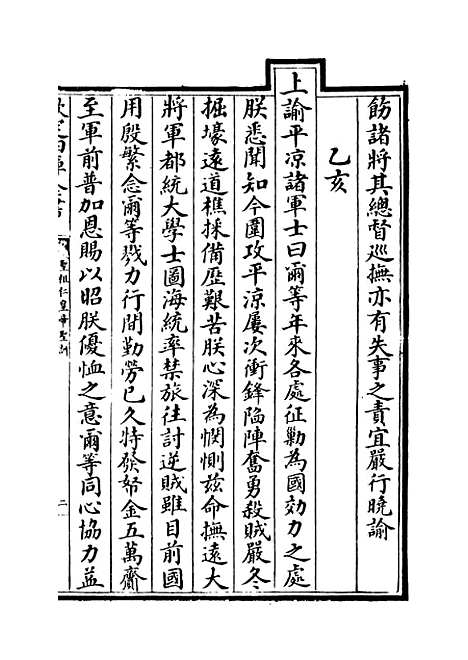 飭諸將其總督巡撫亦有失事之責宜嚴行曉諭
乙亥
上諭平凉諸軍士曰爾等年來各處征勦為國効力之處
朕悉聞知今圍攻平凉屢次衝鋒陷陣奮勇殺賊嚴冬
掘壕遠道樵採備歴艱苦朕心深為憫惻兹命撫遠大
將軍都統大學士圖海統率禁旅往討逆賊雖目前國
用殷繁念爾等戮力行間勤勞已久特發帑金五萬齎
至軍前普加恩賜以昭朕優恤之意爾等同心協力益
聖祖仁皇帝聖訓
二